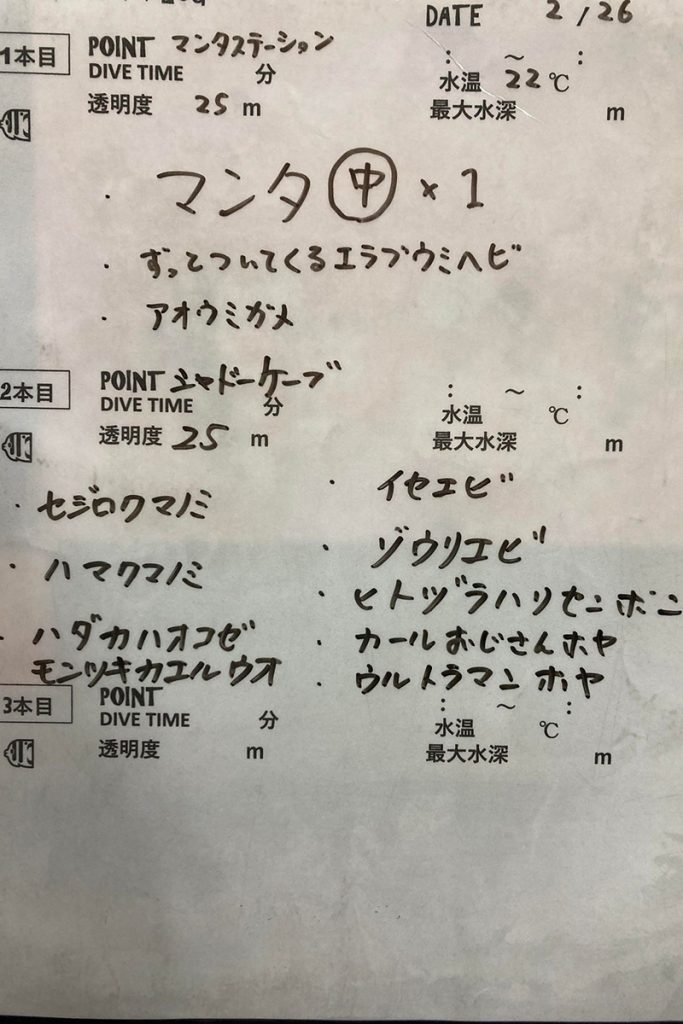 DATE 2/26
1本目 POINT マンタステーション : ~ :
DIVE TIME 分 水温 22℃
透明度 25 m 最大水深 m
・マンタ㊥×1
・ずっとついてくるエラブウミヘビ
・アオウミガメ
2本目 POINT シャドーケーブ : ~ :
DIVE TIME 分 水温 ℃
透明度 25 m 最大水深 m
・セジロクマノミ
・ハマクマノミ
・ハダカハオコゼ
モンツキカエルウオ
・イセエビ
・ゾウリエビ
・ヒトヅラハリセンボン
・カールおじさんホヤ
・ウルトラマンホヤ
3本目 POINT : ~ :
DIVE TIME 分 水温 ℃
透明度 m 最大水深 m